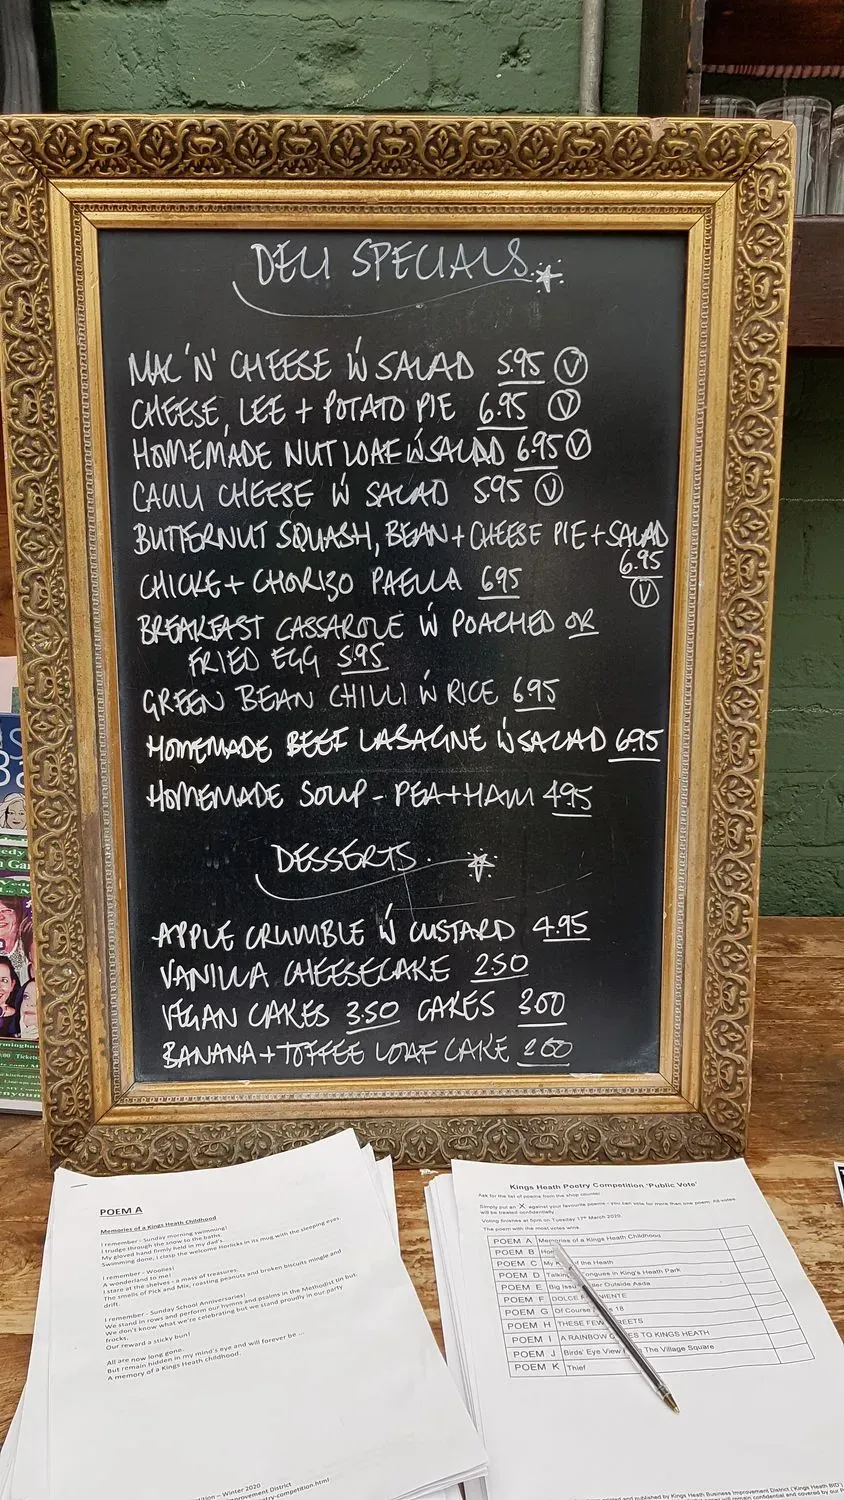 DELI SPECIALS
MAC 'N' CHEESE W SALAD 5.95 V
CHEESE, LEE + POTATO PIE 6.95 V
HOMEMADE NUT LOAF W SALAD 6.95 V
CAULI CHEESE W SALAD 5.95 V
BUTTERNUT SQUASH, BEAN + CHEESE PIE + SALAD
6.95
V
CHICKE + CHORIZO PAELLA 6.95
BREAKFAST CASSAROLE W POACHED OR
FRIED EGG 5.95
GREEN BEAN CHILLI W RICE 6.95
HOMEMADE BEEF LASAGNE W SALAD 6.95
HOMEMADE SOUP - PEA + HAM 4.95
DESSERTS
APPLE CRUMBLE W CUSTARD 4.95
VANILLA CHEESECAKE 2.50
VEGAN CAKES 3.50 CAKES 3.00
BANANA + TOFFEE LOAF CAKE 2.60
POEM A
Memories of a Kings Heath Childhood
I remember - Sunday morning swimming!
I trudge through the snow to the baths.
My gloved hand firmly held in my dad's.
Swimming done, I clasp the welcome Horlicks in its mug with the sleeping eyes.
I remember - Woolies!
A wonderland to me!
I stare at the shelves - a mass of treasures.
The smells of Pick and Mix, roasting peanuts and broken biscuits mingle and
drift.
I remember - Sunday School Anniversaries!
We stand in rows and perform our hymns and psalms in the Methodist tin hut.
We don't know what we're celebrating but we stand proudly in our party
frocks.
Our reward a sticky bun!
All are now long gone.
But remain hidden in my mind's eye and will forever be ...
A memory of a Kings Heath childhood.
– Winter 2020
Improvement District
poetry-competition.html
Kings Heath Poetry Competition 'Public Vote'
Ask for the list of poems from the shop counter
Simply put an X against your favourite poems - you can vote for more than one poem. All votes
will be treated confidentially.
Voting finishes at 5pm on Tuesday 17th March 2020.
The poem with the most votes wins
POEM A Memories of a Kings Heath Childhood
POEM B
POEM C My of the Heath
POEM D Talking Tongues in King's Heath Park
POEM E Big Issue Outside Asda
POEM F DOLCE
POEM G Of Course 18
POEM H THESE FEW STREETS
POEM I A RAINBOW TO KINGS HEATH
POEM J Birds' Eye View The Village Square
POEM K Thief
and published by Kings Heath Business Improvement District ('Kings Heath BID')
will remain confidential and covered by our